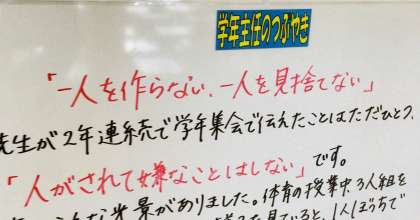 学年主任のつぶやき
「一人を作らない、一人を見捨てない」
先生が2年連続で学年集会で伝えたことはただひとつ、
「人がされて嫌なことはしない」です。
景がありました。体育の授業中、3人組を
見ていると、1人ぼっちで